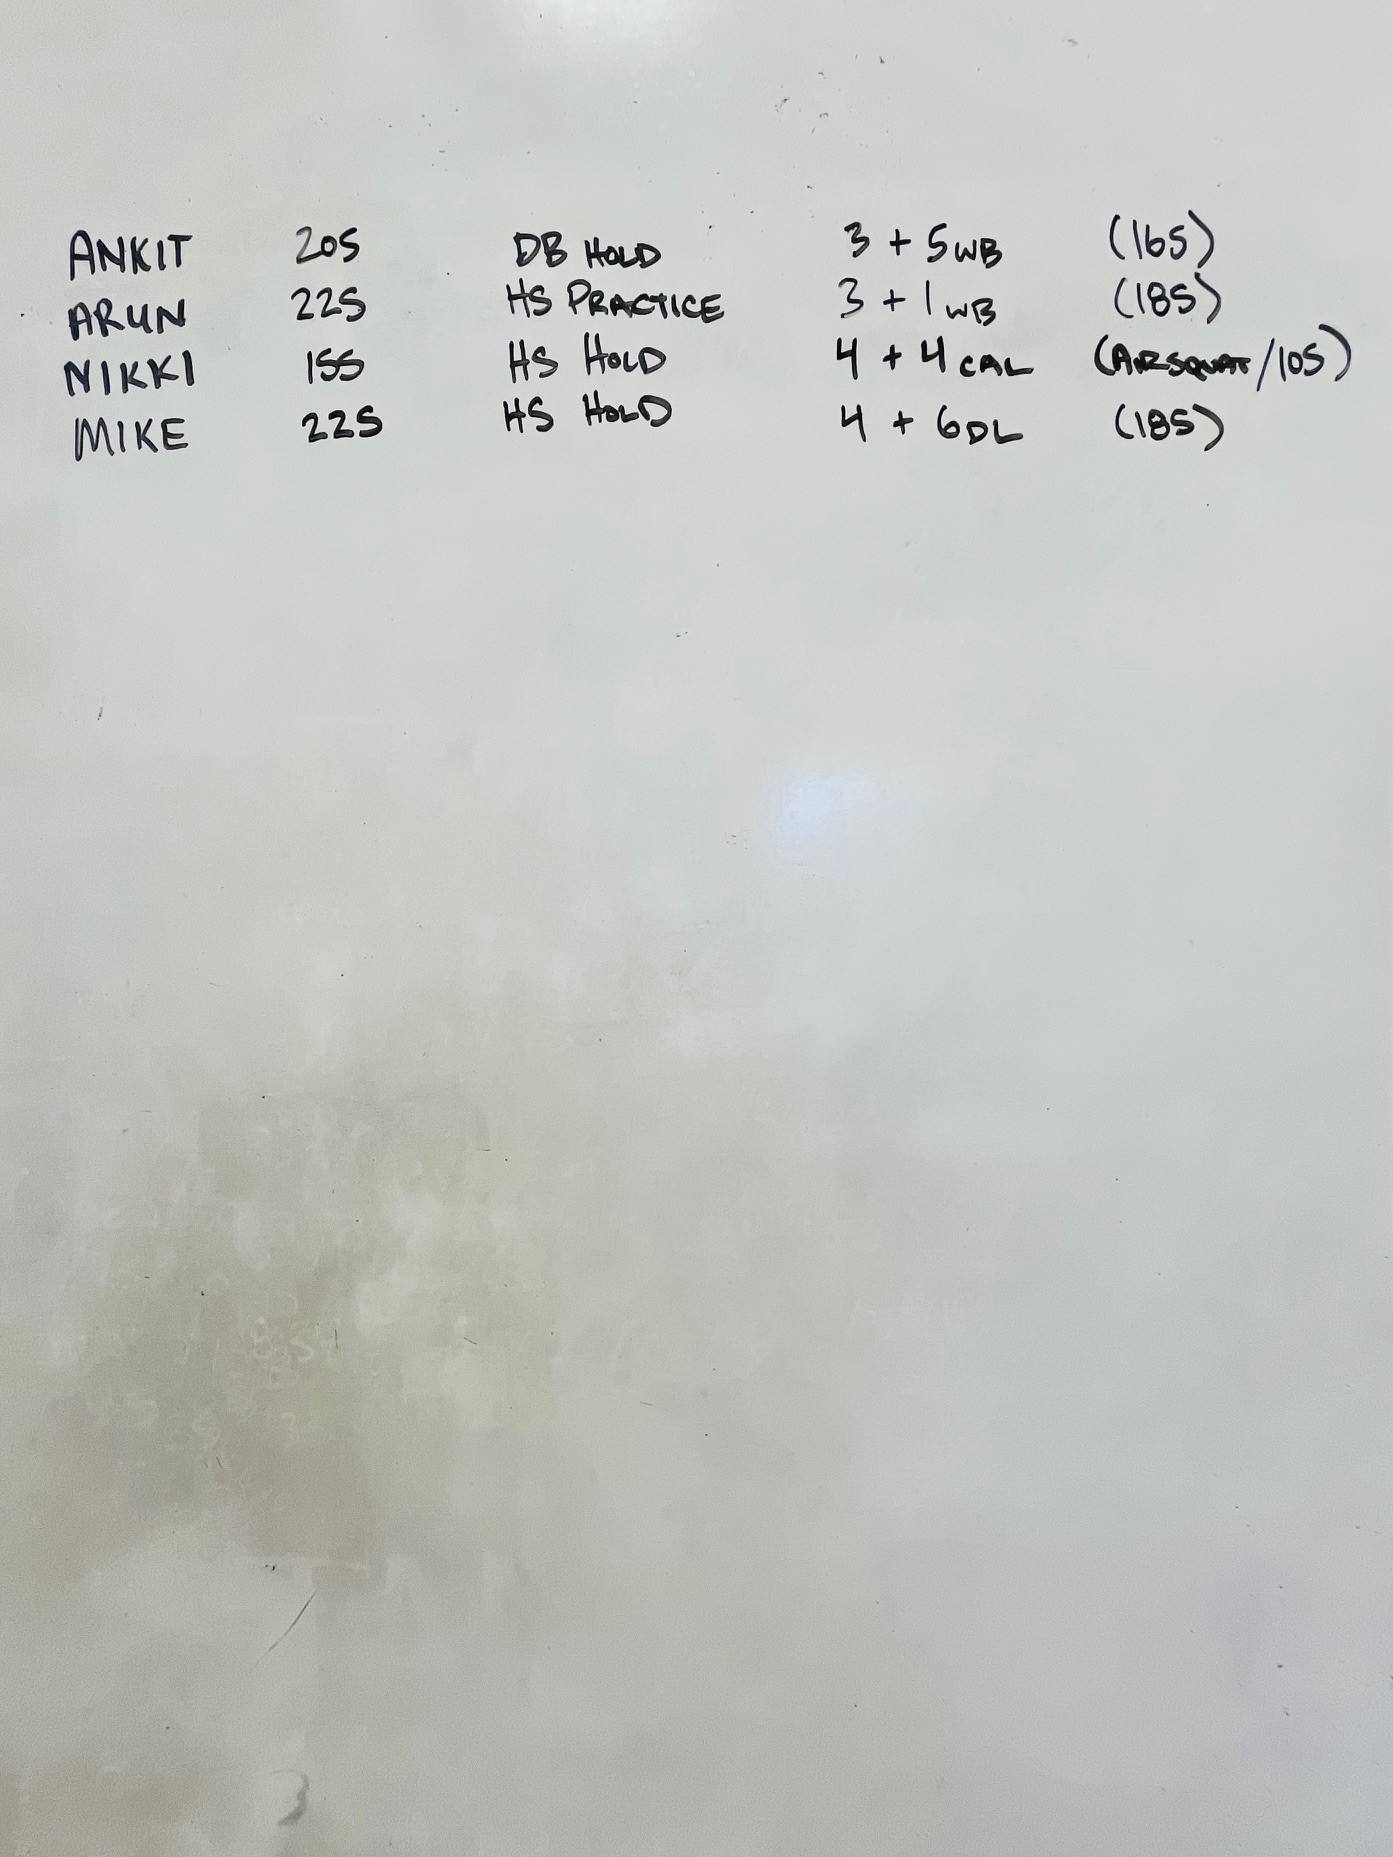 ANKIT 205 DB HOLD 3 + 5 WB (165)
ARUN 225 HS PRACTICE 3 + 1 WB (185)
NIKKI 155 HS HOLD 4 + 4 CAL (AIRSQUAT/105)
MIKE 225 HS HOLD 4 + 6 DL (185)